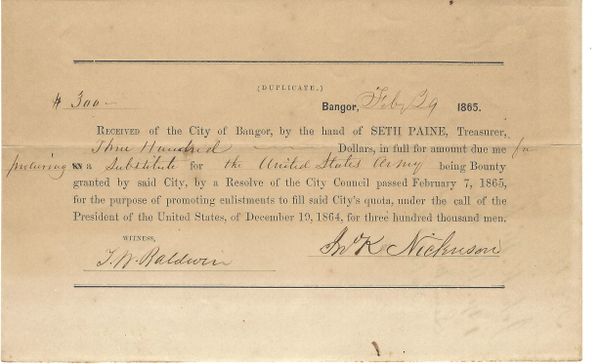 (DUPLICATE.)
$ 300 — Bangor, Feby 9 1865.
RECEIVED of the City of Bangor, by the hand of SETH PAINE, Treasurer,
Three Hundred Dollars, in full for amount due me for
procuring a Substitute for the United States Army being Bounty
granted by said City, by a Resolve of the City Council passed February 7, 1865,
for the purpose of promoting enlistments to fill said City's quota, under the call of the
President of the United States, of December 19, 1864, for three hundred thousand men.
WITNESS,
Jno K Nickerson
Baldwin